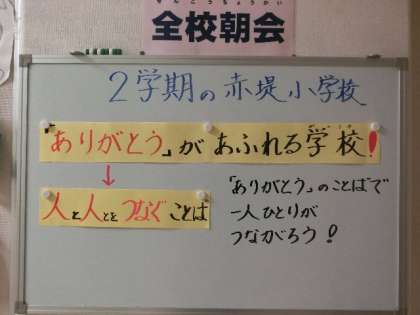 ぜんこうちょうかい
全校朝会
2学期の赤堤小学校
「ありがとう」があふれる学校!
↓
人と人とをつなぐことば
「ありがとう」のことばで
一人ひとりが
つながろう!